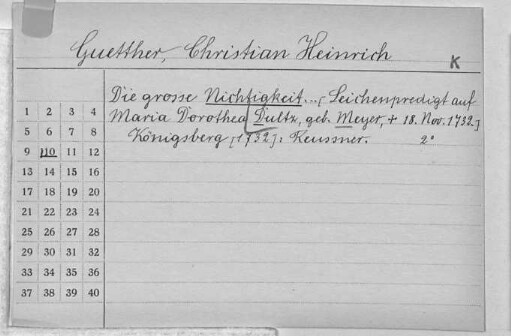 Guetther, Christian Heinrich
K
Die grosse Nichtigkeit...[Leichenpredigt auf
Maria Dorothea Dultz, geb. Meyer, + 18. Nov. 1732.]
Königsberg [1732]: Reussner. 2°
1 2 3 4
5 6 7 8
9 10 11 12
13 14 15 16
17 18 19 20
21 22 23 24
25 26 27 28
29 30 31 32
33 34 35 36
37 38 39 40